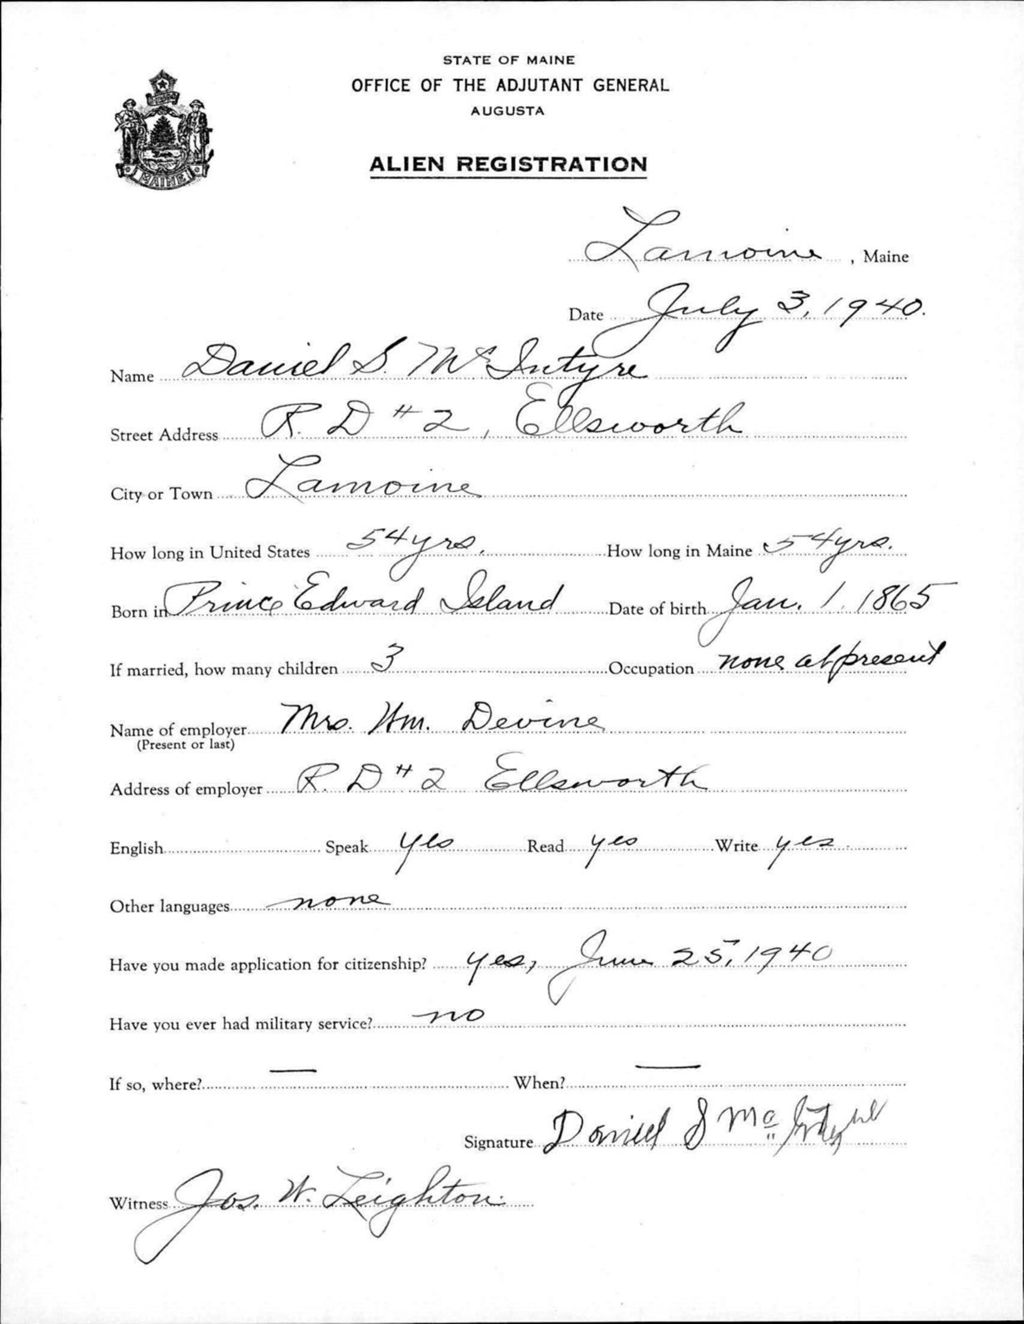 STATE OF MAINE
OFFICE OF THE ADJUTANT GENERAL
AUGUSTA
ALIEN REGISTRATION
MAINE
Lamoine, Maine
Date July 3, 1940.
Name Daniel S. McIntyre
Street Address R. D #2, Ellsworth
City or Town Lamoine
How long in United States 54 yrs. How long in Maine 54 yrs.
Born in Prince Edward Island Date of birth Jan. 1, 1865
If married, how many children 3 Occupation none at present
Name of employer Mrs. Wm. Devine
(Present or last)
Address of employer R. D #2 Ellsworth
English Speak yes Read yes Write yes
Other languages none
Have you made application for citizenship? yes, June 25, 1940
Have you ever had military service? no
If so, where? — When? —
Signature Daniel S McIntyre
Witness Jos. W. Leighton.